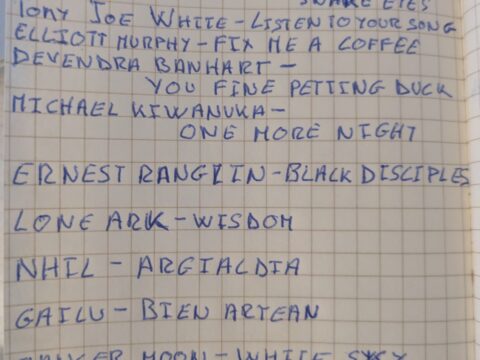 SNAKE EYES
TONY JOE WHITE - LISTEN TO YOUR SONG
ELLIOTT MURPHY - FIX ME A COFFEE
DEVENDRA BANHART -
YOU FINE PETTING DUCK
MICHAEL KIWANUKA -
ONE MORE NIGHT
ERNEST RANGLIN - BLACK DISCIPLES
LONE ARK - WISDOM
NHIL - ARGIALDIA
GAILU - BIEN ARTEAN
MOON - WHITE